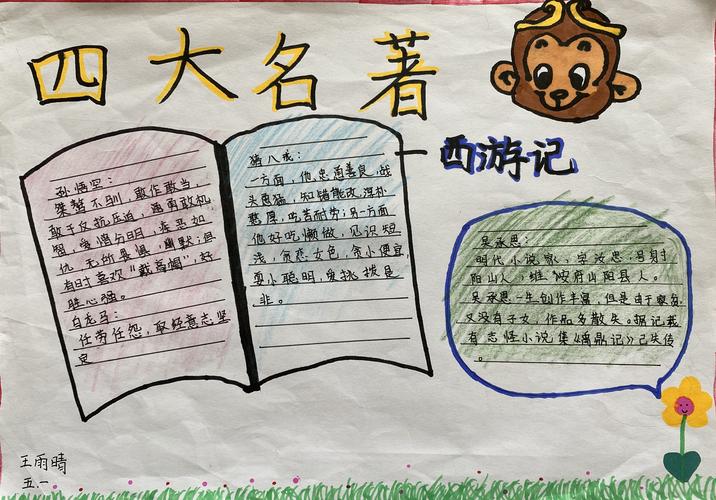 四大名著
西游记
孙悟空：
桀骜不驯，敢作敢当，
敢于反抗压迫，勇敢机
智，爱憎分明，疾恶如
仇，无所畏惧，幽默；但
有时喜欢"戴高帽"，好
胜心强。
白龙马：
任劳任怨，取经意志坚
定
猪八戒：
一方面，他忠勇善良，战
头勇猛，知错能改，淳朴
憨厚，吃苦耐劳；另一方面
他好吃懒做，见识短
浅，贪恋女色，贪小便宜，
耍小聪明，爱挑拨是
非。
吴承恩：
明代小说家，字汝忠，号射
阳山人，淮安府山阳县人。
吴承恩一生创作丰富，但是由于家贫，
又没有子女，作品多散失。据记载
有志怪小说集《禹鼎记》已失传
。
王雨晴
五.一